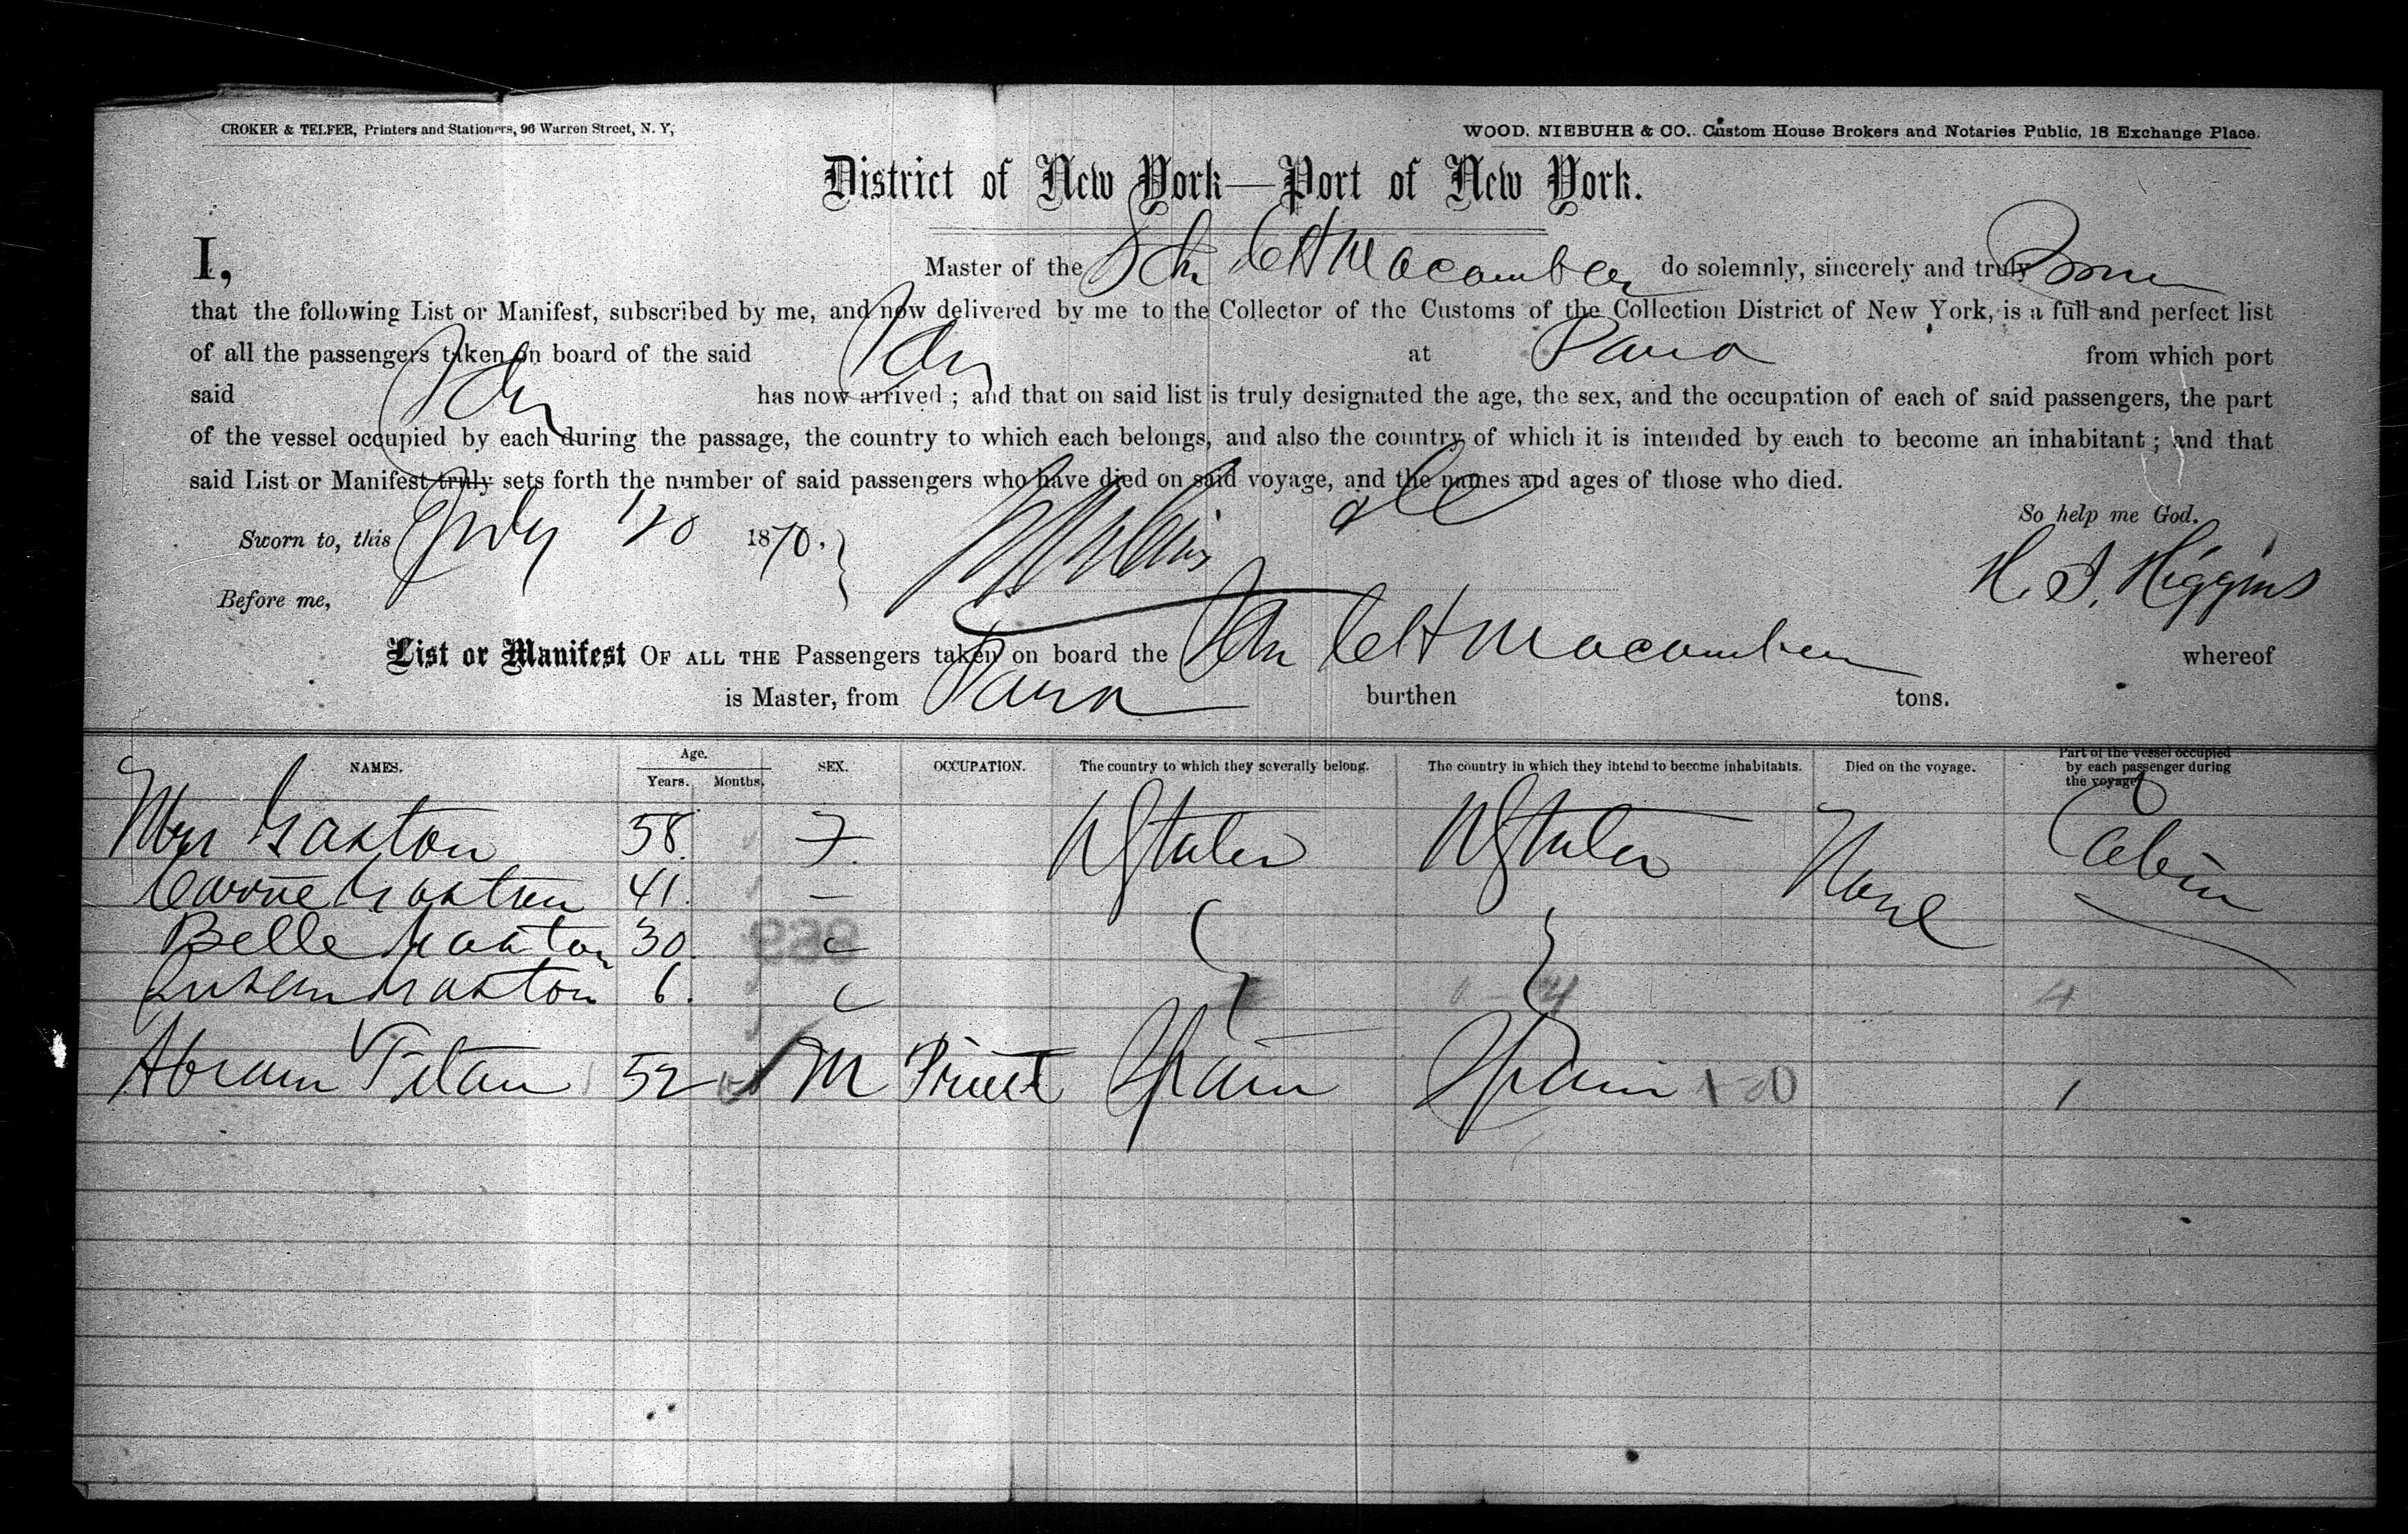 CROKER & TELFER, Printers and Stationers, 96 Warren Street, N. Y,
WOOD, NIEBUHR & CO., Custom House Brokers and Notaries Public, 18 Exchange Place.
District of New York—Port of New York.
I, Master of the Sch C H Macomber do solemnly, sincerely and truly
that the following List or Manifest, subscribed by me, and now delivered by me to the Collector of the Customs of the Collection District of New York, is a full and perfect list
of all the passengers taken on board of the said Sch at Para from which port
said Sch has now arrived; and that on said list is truly designated the age, the sex, and the occupation of each of said passengers, the part
of the vessel occupied by each during the passage, the country to which each belongs, and also the country of which it is intended by each to become an inhabitant; and that
said List or Manifest truly sets forth the number of said passengers who have died on said voyage, and the names and ages of those who died.
So help me God.
Sworn to, this July 1870.
H. S. Higgins
Before me,
List or Manifest OF ALL THE Passengers taken on board the Sch C H Macomber whereof
is Master, from Para burthen tons.
NAMES. Age. Years. Months. SEX. OCCUPATION. The country to which they severally belong. The country in which they intend to become inhabitants. Died on the voyage. Part of the vessel occupied by each passenger during the voyage
Mrs Gaston 58. F. U States U States None Cabin
Carrie Gaston 41.
Belle Gaston 30.
Susan Gaston 6. 4 4
Abram 52 M Priest Spain Spain 1